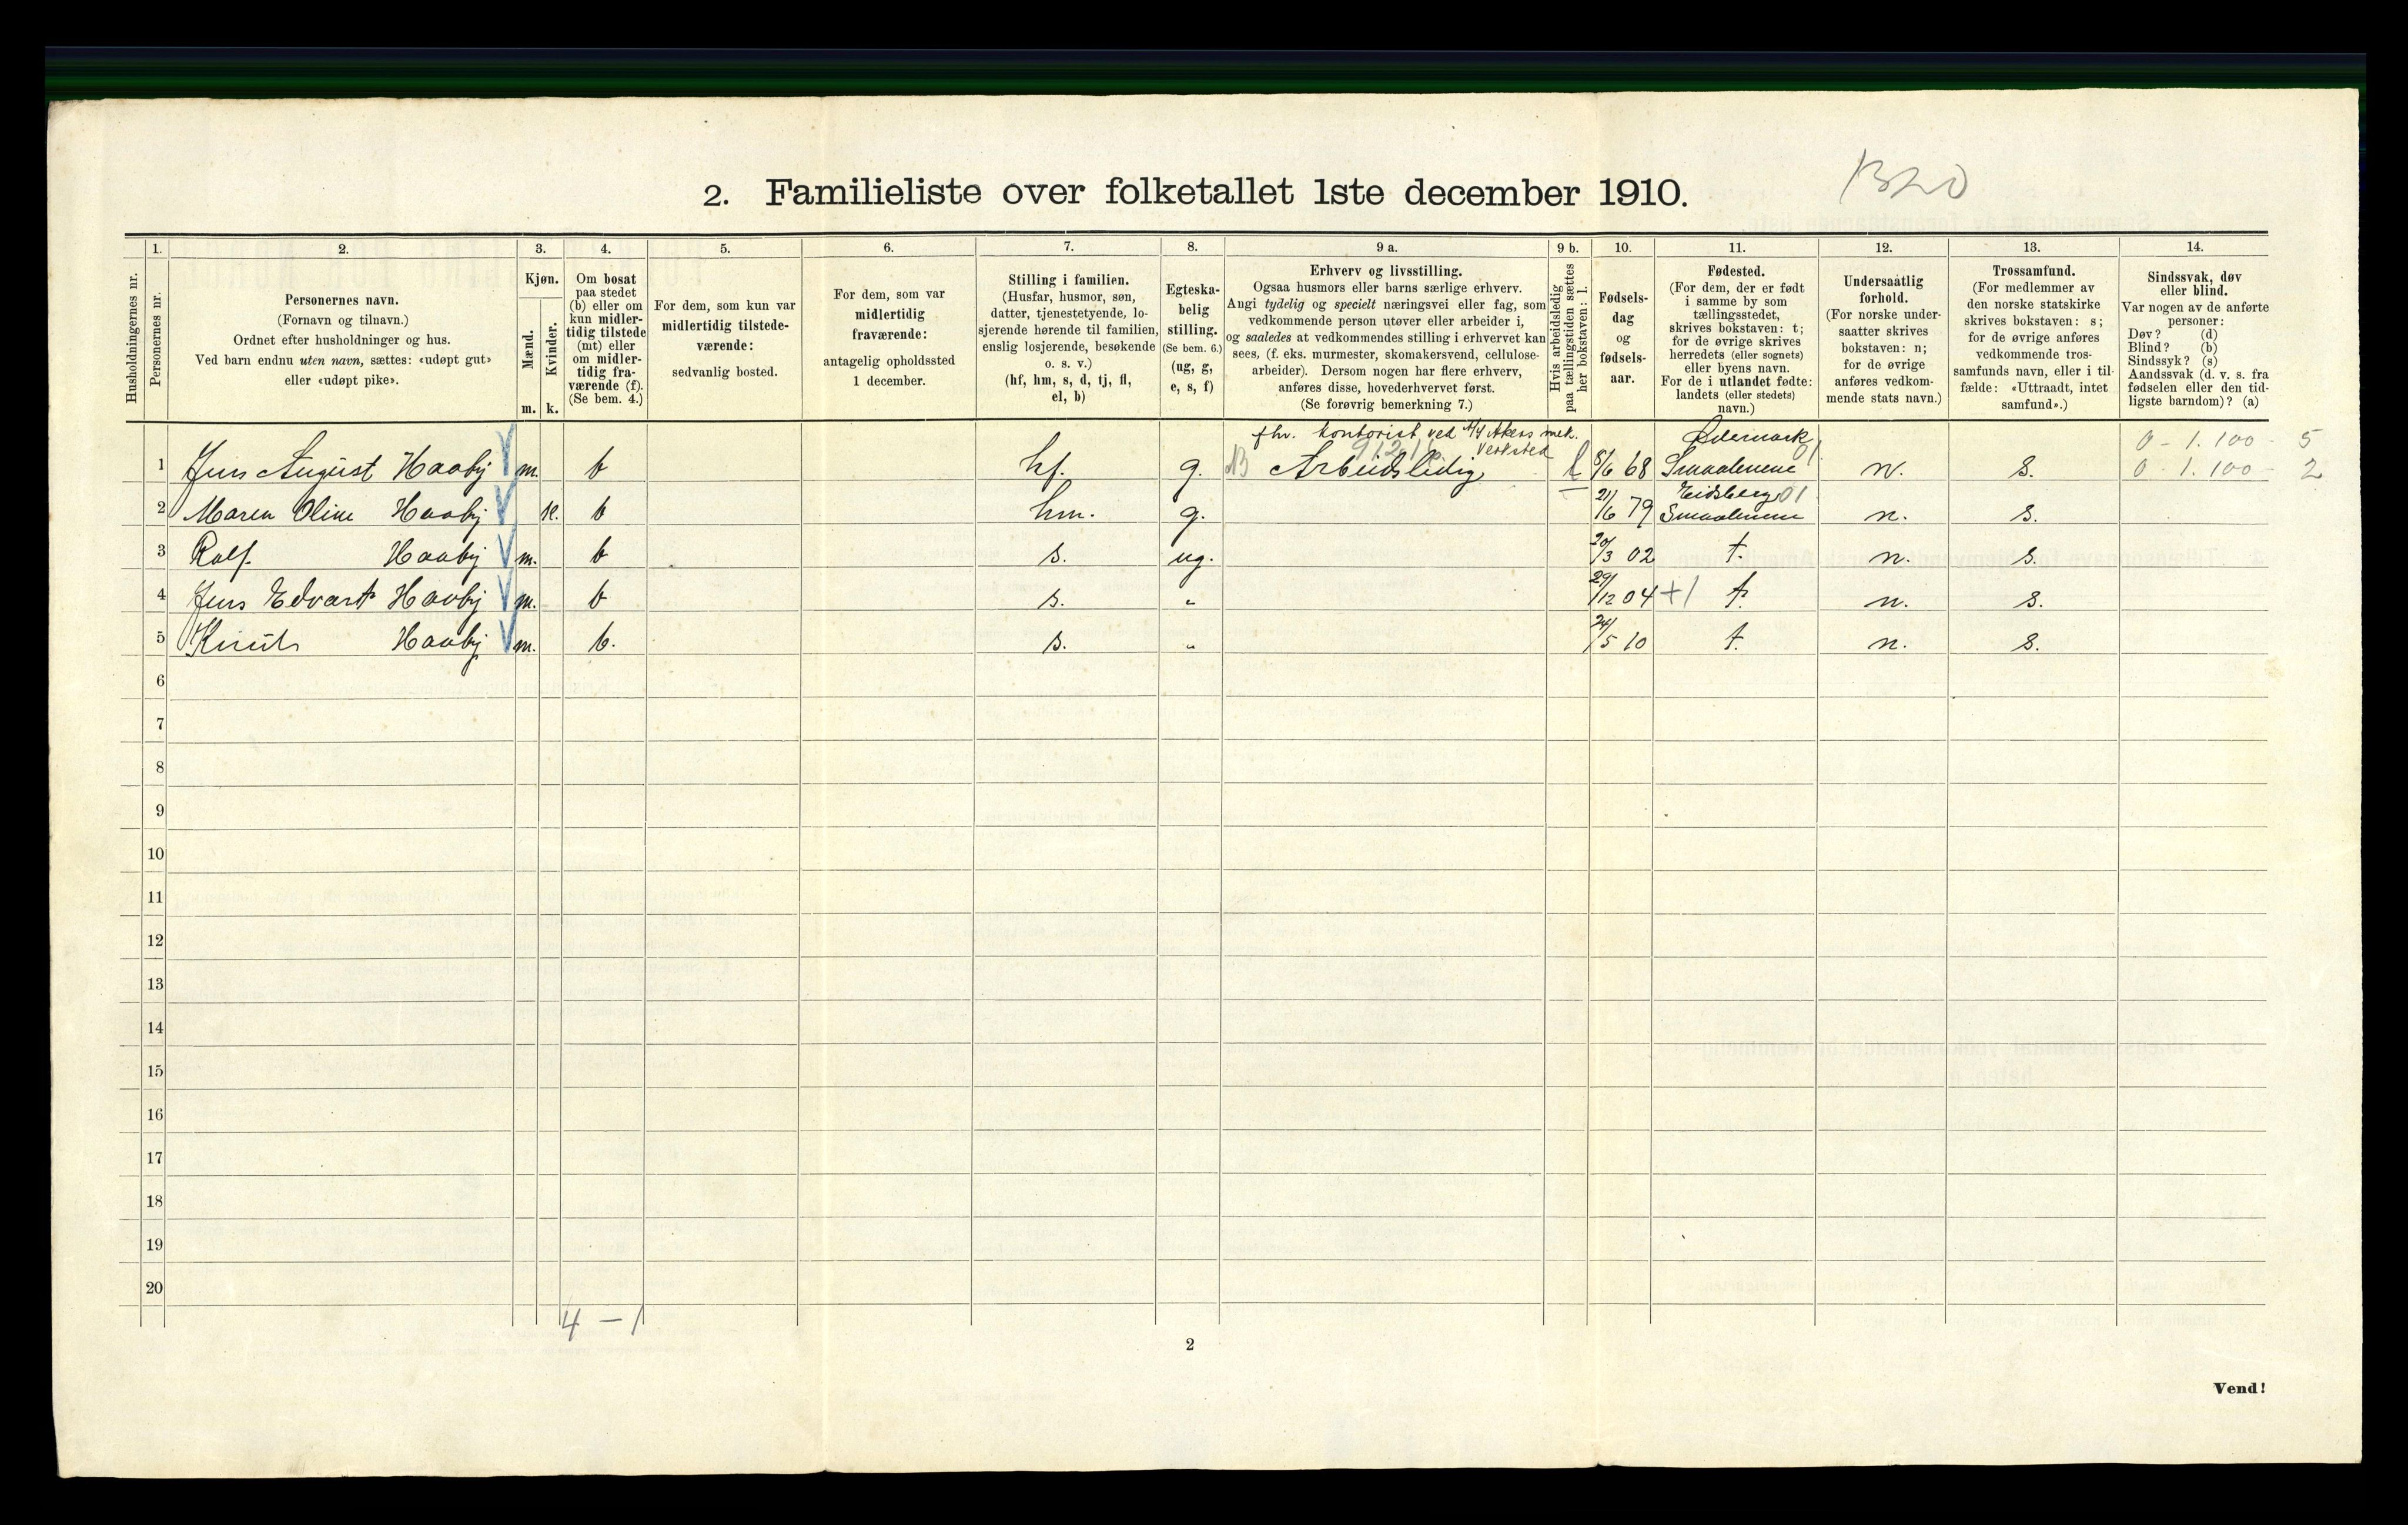 1320
2. Familieliste over folketallet 1ste december 1910.
Husholdningernes nr.
1. Personernes nr.
2. Personernes navn.
(Fornavn og tilnavn.)
Ordnet efter husholdninger og hus.
Ved barn endnu uten navn, sættes: «udøpt gut»
eller «udøpt pike».
3. Kjøn.
Mænd. Kvinder.
m. k.
4. Om bosat
paa stedet
(b) eller om
kun midler-
tidig tilstede
(mt) eller
om midler-
tidig fra-
værende (f).
(Se bem. 4.)
5. For dem, som kun var
midlertidig tilstede-
værende:
sedvanlig bosted.
6. For dem, som var
midlertidig
fraværende:
antagelig opholdssted
1 december.
7. Stilling i familien.
(Husfar, husmor, søn,
datter, tjenestetyende, lo-
sjerende hørende til familien,
enslig losjerende, besøkende
o. s. v.)
(hf, hm, s, d, tj, fl,
el, b)
8. Egteska-
belig
stilling.
(Se bem. 6.)
(ug, g,
e, s, f)
9 a. Erhverv og livsstilling.
Ogsaa husmors eller barns særlige erhverv.
Angi tydelig og specielt næringsvei eller fag, som
vedkommende person utøver eller arbeider i,
og saaledes at vedkommendes stilling i erhvervet kan
sees, (f. eks. murmester, skomakersvend, cellulose-
arbeider). Dersom nogen har flere erhverv,
anføres disse, hovederhvervet først.
(Se forøvrig bemerkning 7.)
9 b. Hvis arbeidsledig
paa tællingstiden sættes
her bokstaven: l.
10. Fødsels-
dag
og
fødsels-
aar.
11. Fødested.
(For dem, der er født
i samme by som
tællingsstedet,
skrives bokstaven: t;
for de øvrige skrives
herredets (eller sognets)
eller byens navn.
For de i utlandet fødte:
landets (eller stedets)
navn.)
12. Undersaatlig
forhold.
(For norske under-
saatter skrives
bokstaven: n;
for de øvrige
anføres vedkom-
mende stats navn.)
13. Trossamfund.
(For medlemmer av
den norske statskirke
skrives bokstaven: s;
for de øvrige anføres
vedkommende tros-
samfunds navn, eller i til-
fælde: «Uttraadt, intet
samfund».)
14. Sindssvak, døv
eller blind.
Var nogen av de anførte
personer:
Døv? (d)
Blind? (b)
Sindssyk? (s)
Aandssvak (d. v. s. fra
fødselen eller den tid-
ligste barndom)? (a)
fhv. kontorist ved A/S Akers mek. Verksted Ødemark 0 - 1. 100 - 5
1 Jens August Haaby m. b hf. g. Arbeidsledig l 8/6 68 Smaalenene 01 n. s. 0 - 1. 100 - 2
Eidsberg 01
2 Maren Oline Haaby k. b hm. g. 21/6 79 Smaalenene n. s.
3 Rolf Haaby m. b s. ug. 20/3 02 t. n. s.
4 Jens Edvart Haaby m. b s. " 29/12 04 +1 t. n. s.
5 Knut Haaby m. b. s. " 24/5 10 t. n. s.
6
7
8
9
10
11
12
13
14
15
16
17
18
19
20
4 - 1
2
Vend!